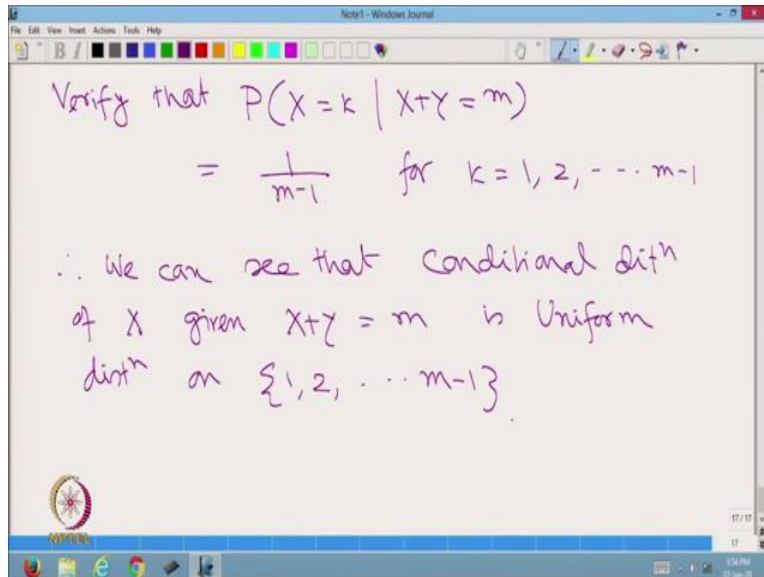 Note1 - Windows Journal
File Edit View Insert Actions Tools Help
Verify that P(X=k | X+Y=m)
= 1/(m-1) for k=1, 2, --- m-1
∴ We can see that Conditional distn
of X given X+Y = m is Uniform
distn on {1, 2, ... m-1}.
NPTEL
17/17
17
3:54 PM